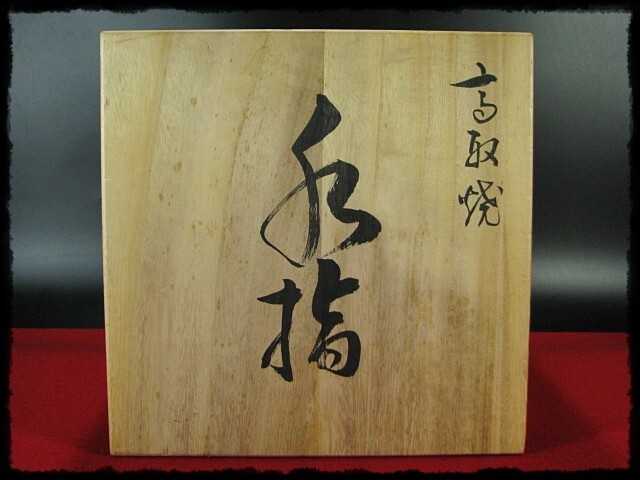 高取焼
水指